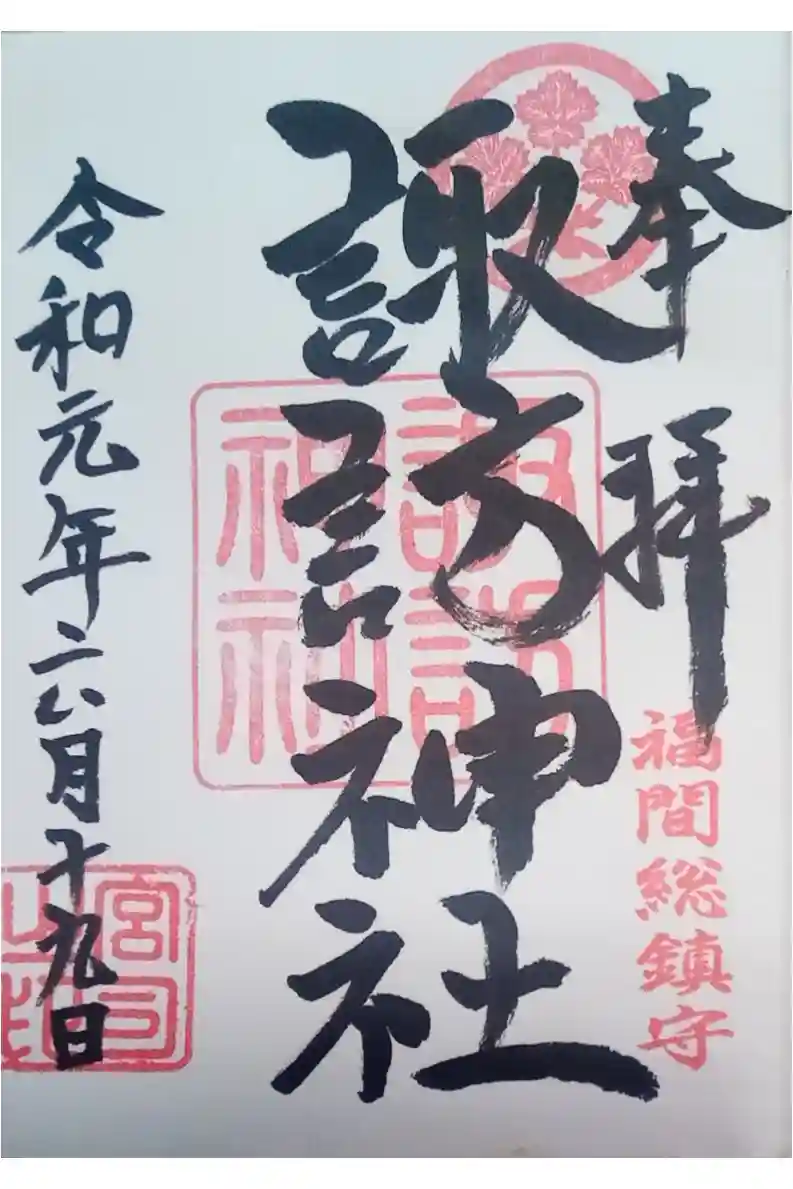 奉拝
福間総鎮守
諏訪神社
諏訪神社
令和元年六月十九日
宮司